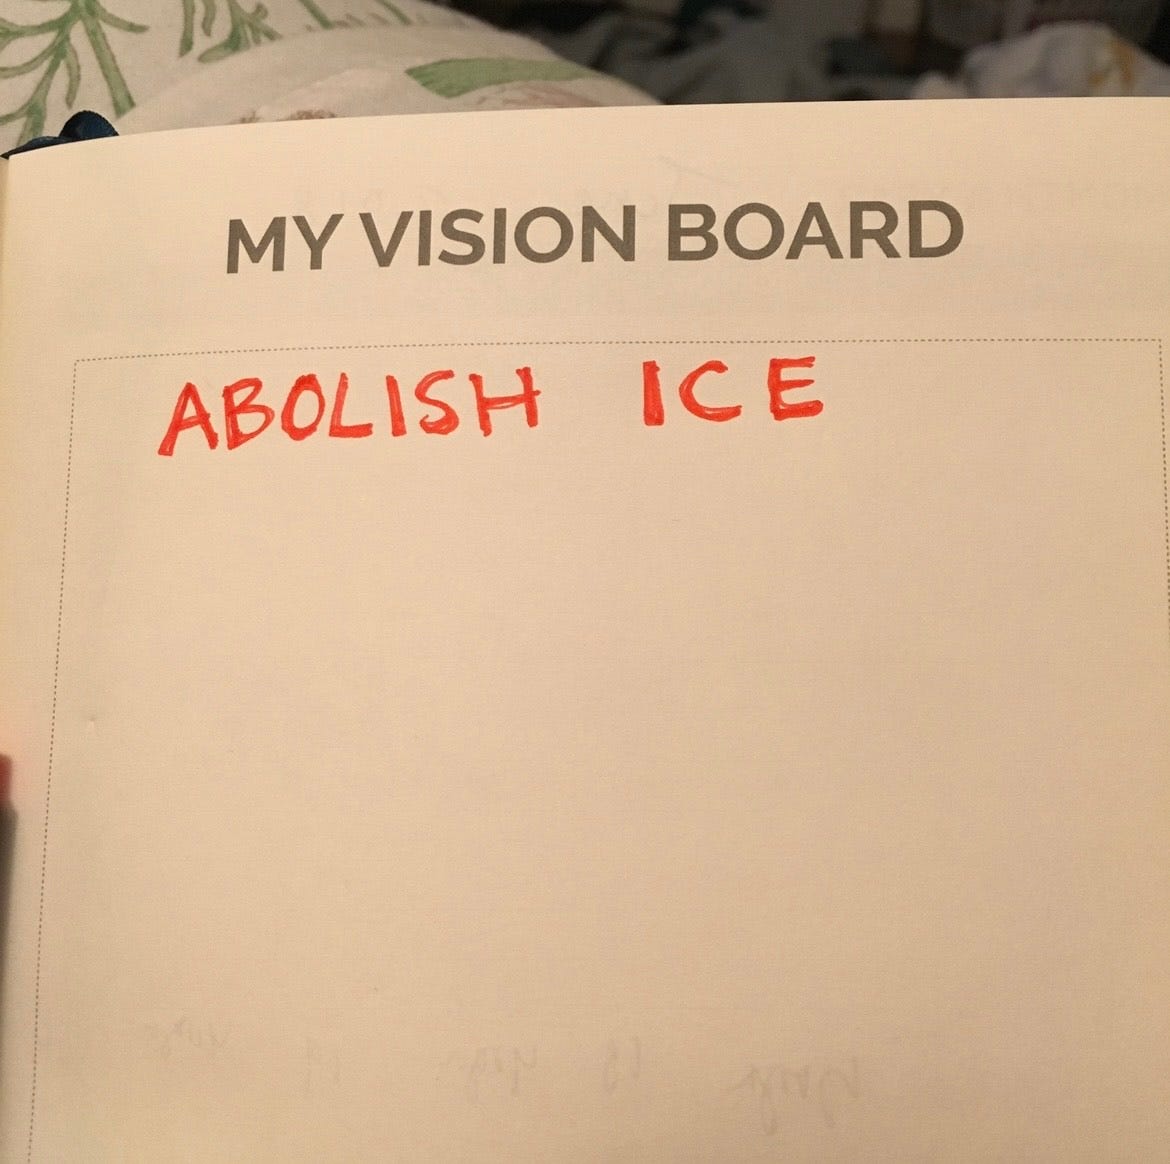 MY VISION BOARD
ABOLISH ICE